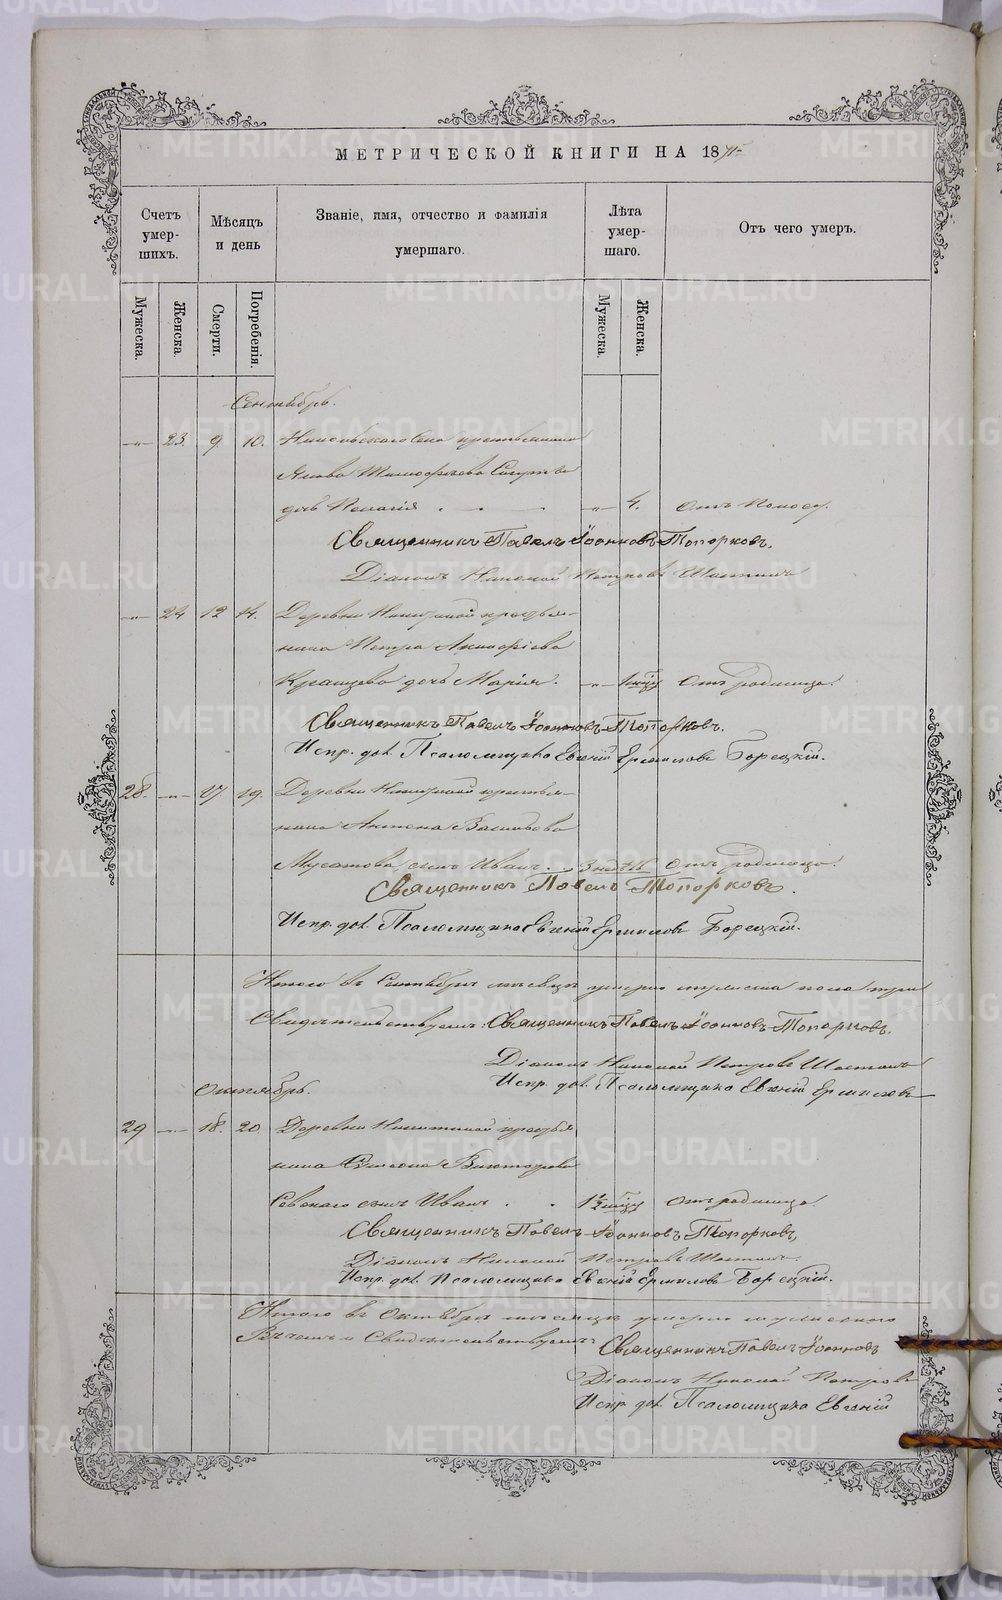 МЕТРИЧЕСКОЙ КНИГИ НА 18
Счетъ умершихъ.
Мѣсяцъ и день
Званіе, имя, отчество и фамилія умершаго.
Лѣта умершаго.
Отъ чего умеръ.
Мужеска.
Женска.
Смерти.
Погребенія.
Мужеска.
Женска.
Сентябрь.
-"- 23. 9. 10. Никольскаго Села крестьянина
Якова Тимофѣева
дочь Пелагія -"- 4. Отъ поносу.
Священникъ Павелъ Іоанновъ Топорковъ.
Діаконъ Николай Петровъ
-"- 24 12 14. Деревни крестья-
нина Петра
дочь Марія. -"- Отъ родимца.
Священникъ Павелъ Іоанновъ Топорковъ.
Испр. дол. Псаломщика Евгеній Ермиловъ Борецкій.
28. -"- 17 19. Деревни крестья-
нина Антона Васильева
Мусатова сынъ Иванъ. 3 недѣль Отъ родимца.
Священникъ Павелъ Топорковъ.
Испр. дол. Псаломщика Евгеній Ермиловъ Борецкій.
Итого въ Сентябрѣ мѣсяцѣ умерло мужеска пола три
Свидѣтельствуемъ: Священникъ Павелъ Іоанновъ Топорковъ.
Діаконъ Николай Петровъ
Испр. дол. Псаломщика Евгеній Ермиловъ
Октябрь.
29 -"- 18. 20. Деревни крестья
нина Викторова
сынъ Иванъ Отъ родимца.
Священникъ Павелъ Іоанновъ Топорковъ,
Діаконъ Николай Петровъ
Испр. дол. Псаломщика Евгеній Ермиловъ Борецкій.
Итого въ Октябрѣ мѣсяцѣ умерло мужескаго
В чемъ и Свидѣтельствуемъ: Священникъ Павелъ Іоанновъ
Діаконъ Николай Петровъ
Испр. дол. Псаломщика Евгеній
METRIKI.GASO-URAL.RU